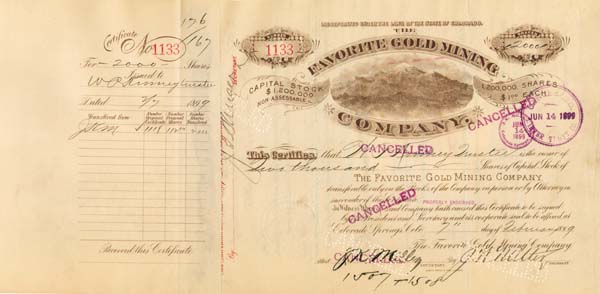 176
Certificate
No 1133
167
For -2000- Shares
Issued to
Dated 2/7 1899
Transferred from
Received this Certificate
INCORPORATED UNDER THE LAWS OF THE STATE OF COLORADO.
1133
2000
THE
FAVORITE GOLD MINING
COMPANY.
CAPITAL STOCK
$1,200,000
NON ASSESSABLE.
1,200,000 SHARES
$1.00 EACH
CANCELLED
JUN 14 1899
JUN 14 1899
CANCELLED
This Certifies that Trustee is the owner of
two thousand Shares of Capital Stock of
THE FAVORITE GOLD MINING COMPANY.
transferable only on the Books of the Company in person or by Attorney on
surrender of this
PROPERLY ENDORSED.
CANCELLED
In Witness Whereof said Company hath caused this Certificate to be signed
by its President and Secretary and its corporate seal to be affixed at
Colorado Springs, Colo. 7th day of February 1899
The Favorite Gold Mining Company
Attest
By
SECRETARY
PRESIDENT
1507 + 1508